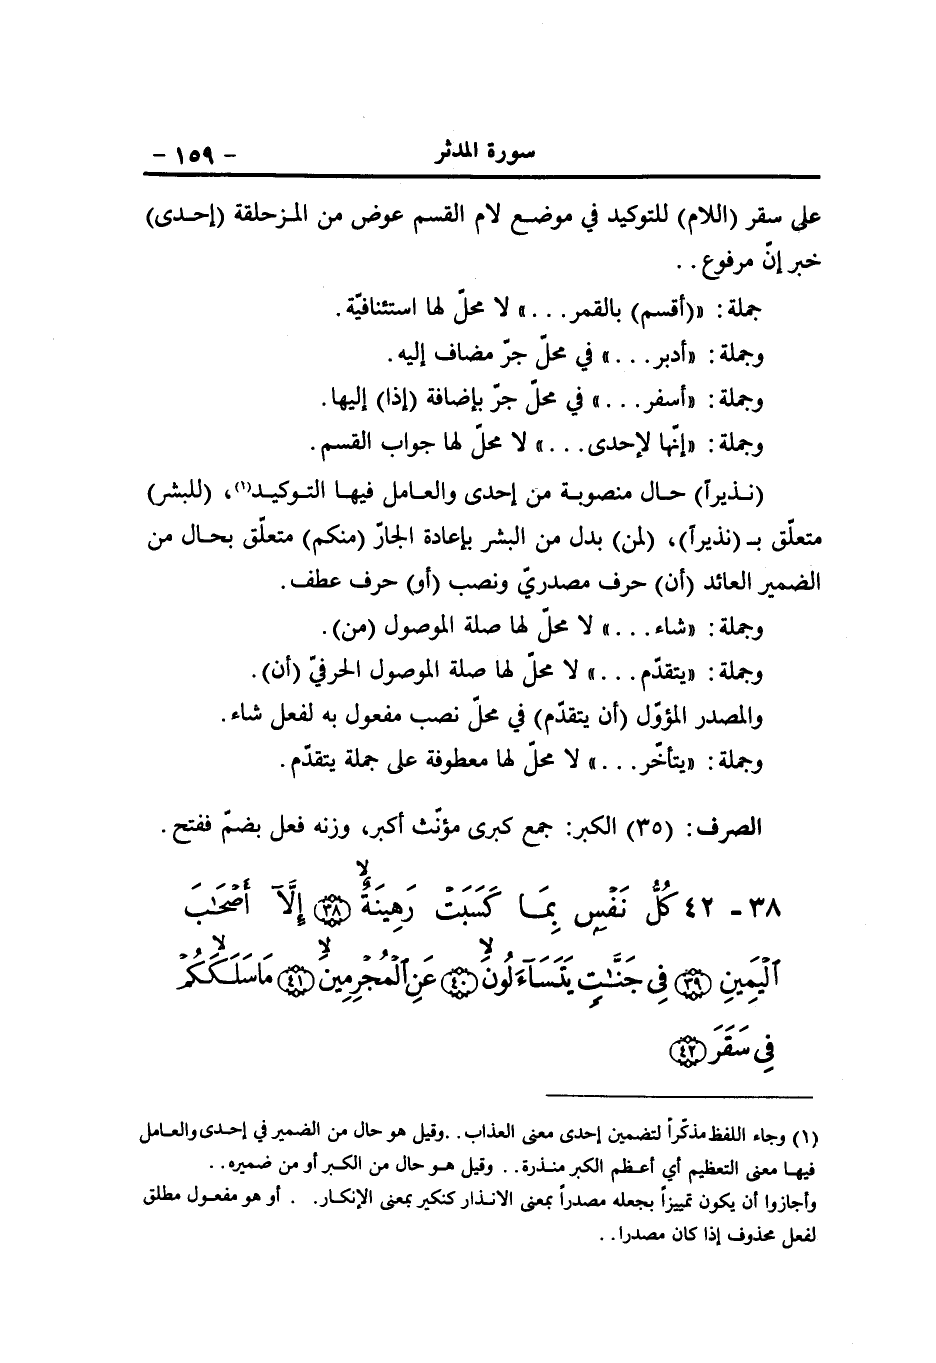 سورة المدثر - ١٥٩ -
على سقر (اللام) للتوكيد في موضع لام القسم عوض من المزحلقة (إحدى)
خبر إنّ مرفوع..
جملة: «(أقسم) بالقمر...» لا محلّ لها استئنافيّة.
وجملة: «أدبر...» في محلّ جرّ مضاف إليه.
وجملة: «أسفر...» في محلّ جرّ بإضافة (إذا) إليها.
وجملة: «إنّها لإحدى...» لا محلّ لها جواب القسم.
(نذيراً) حال منصوبة من إحدى والعامل فيها التوكيد(١)، (للبشر)
متعلّق بـ (نذيراً)، (لمن) بدل من البشر بإعادة الجارّ (منكم) متعلّق بحال من
الضمير العائد (أن) حرف مصدريّ ونصب (أو) حرف عطف.
وجملة: «شاء...» لا محلّ لها صلة الموصول (من).
وجملة: «يتقدّم...» لا محلّ لها صلة الموصول الحرفيّ (أن).
والمصدر المؤوّل (أن يتقدّم) في محلّ نصب مفعول به لفعل شاء.
وجملة: «يتأخّر...» لا محلّ لها معطوفة على جملة يتقدّم.
الصرف: (٣٥) الكبر: جمع كبرى مؤنّث أكبر، وزنه فعل بضمّ ففتح.
٣٨ - ٤٢ كُلُّ نَفْسٍ بِمَا كَسَبَتْ رَهِينَةٌ ۙ ٣٨ إِلَّآ أَصْحَـٰبَ
ٱلْيَمِينِ ٣٩ فِى جَنَّـٰتٍ يَتَسَآءَلُونَ ۙ ٤٠ عَنِ ٱلْمُجْرِمِينَ ۙ ٤١ مَا سَلَكَكُمْ ۙ
فِى سَقَرَ ٤٢
(١) وجاء اللفظ مذكّراً لتضمين إحدى معنى العذاب.. وقيل هو حال من الضمير في إحدى والعامل
فيها معنى التعظيم أي أعظم الكبر منذرة.. وقيل هو حال من الكبر أو من ضميره..
وأجازوا أن يكون تمييزاً بجعله مصدراً بمعنى الانذار كنكير بمعنى الإنكار. . أو هو مفعول مطلق
لفعل محذوف إذا كان مصدرا..